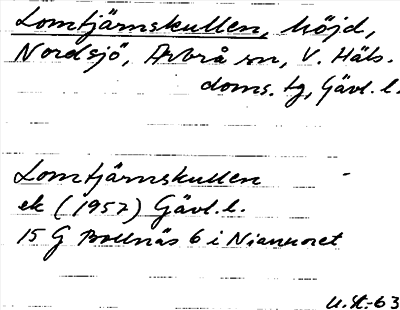 Lomtjärnskullen, höjd,
Nordsjö, Arbrå sn, V. Häls.
doms. tg, Gävl. l.
Lomtjärnskullen
ek (1957) Gävl. l.
15 G Bollnäs 6 i Nianoret
U.St-63